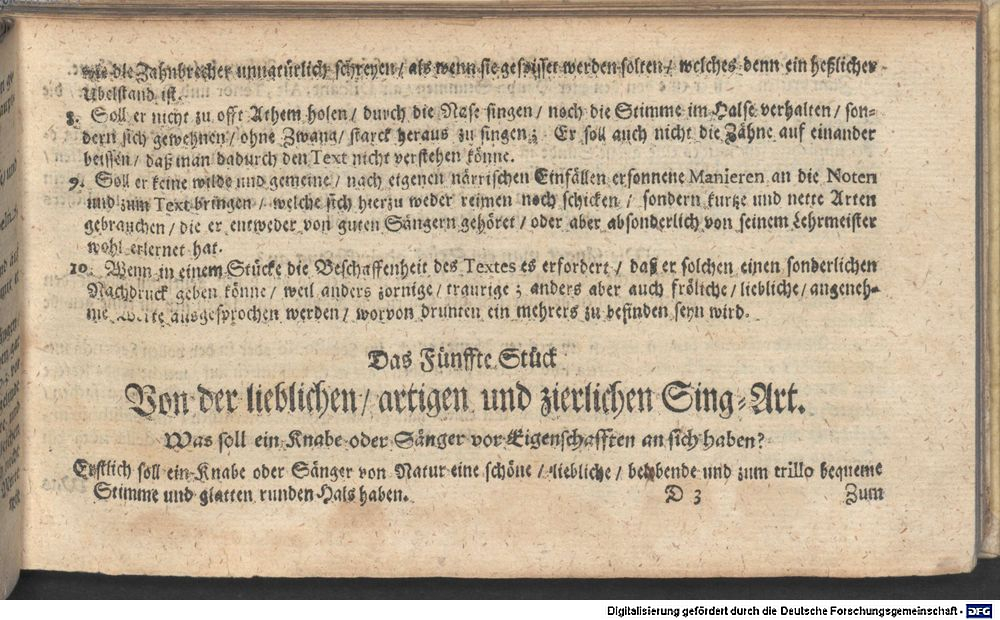 wie die Zahnbrecher unnatürlich schreyen / als wenn sie gespisset werden solten / welches denn ein heßlicher
Ubelstand ist.
8. Soll er nicht zu offt Athem holen / durch die Nase singen / noch die Stimme im Halse verhalten / son-
dern sich gewehnen / ohne Zwang / starck heraus zu singen; Er soll auch nicht die Zähne auf einander
beissen / daß man dadurch den Text nicht verstehen könne.
9. Soll er keine wilde und gemeine / nach eigenen närrischen Einfällen ersonnene Manieren an die Noten
und zum Text bringen / welche sich hierzu weder reimen noch schicken / sondern kurtze und nette Arten
gebrauchen / die er entweder von guten Sängern gehöret / oder aber absonderlich von seinem Lehrmeister
wohl erlernet hat.
10. Wenn in einem Stücke die Beschaffenheit des Textes es erfordert / daß er solchen einen sonderlichen
Nachdruck geben könne / weil anders zornige / traurige; anders aber auch fröliche / liebliche / angeneh-
me Worte ausgesprochen werden / worvon drunten ein mehrers zu befinden seyn wird.
Das Fünffte Stück
Von der lieblichen / artigen und zierlichen Sing-Art.
Was soll ein Knabe oder Sänger vor Eigenschafften an sich haben?
Erstlich soll ein Knabe oder Sänger von Natur eine schöne / liebliche / bebende und zum trillo bequeme
Stimme und glatten runden Hals haben.
D 3 Zum
Digitalisierung gefördert durch die Deutsche Forschungsgemeinschaft - DFG